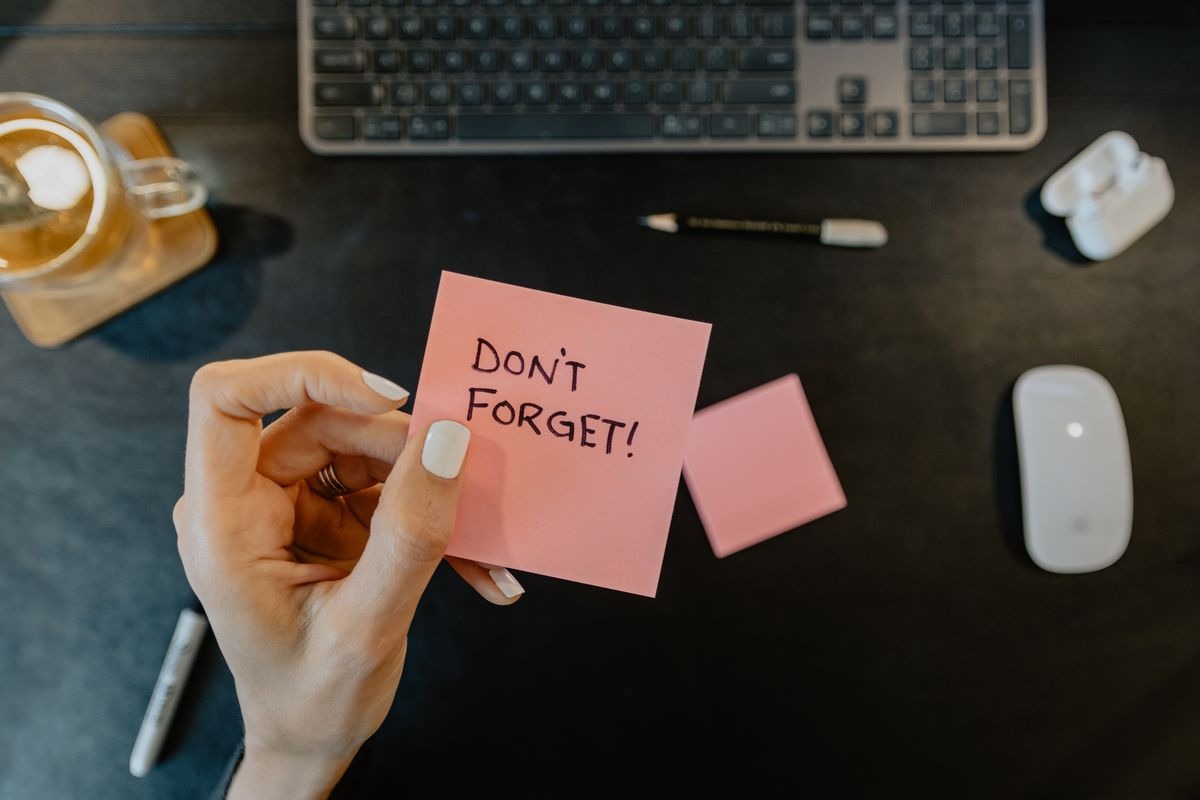 DON'T
FORGET!